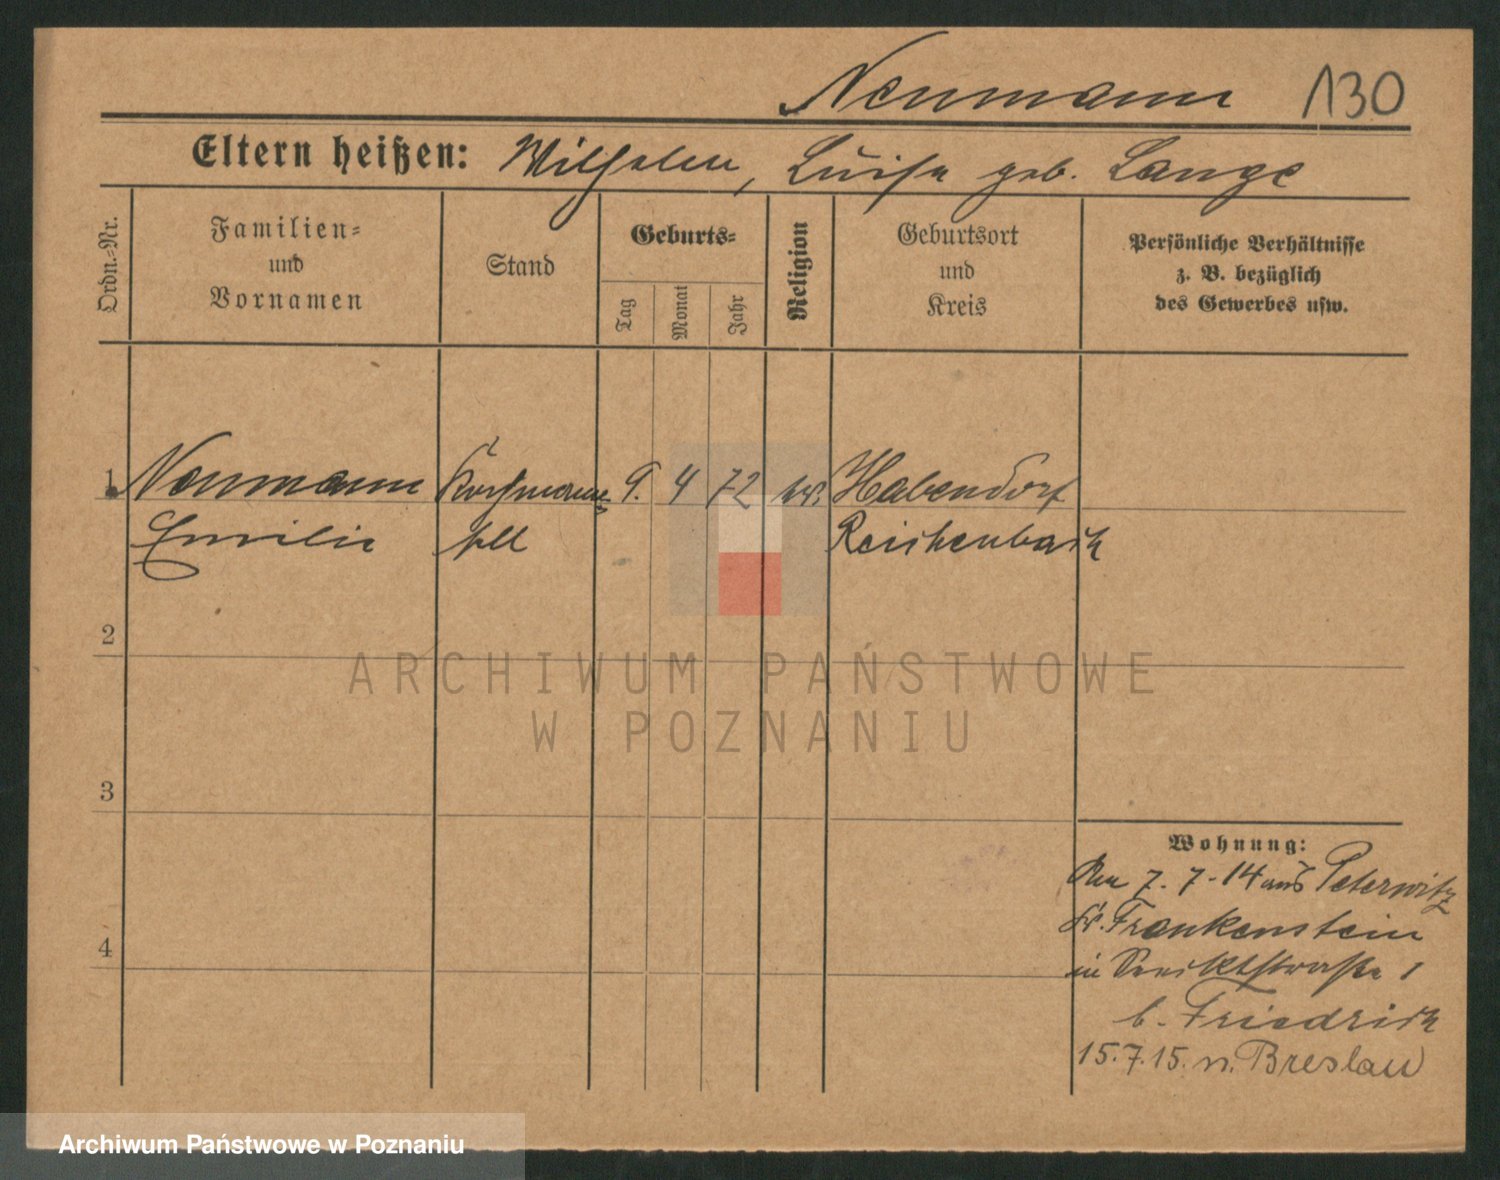 Neumann 130
Eltern heißen: Wilhelm, Luise geb. Lange
Ordn.-Nr.
Familien- und Vornamen
Stand
Geburts-
Tag
Monat
Jahr
Religion
Geburtsort und Kreis
Persönliche Verhältnisse z. B. bezüglich des Gewerbes usw.
1 Neumann 9. 4 72 ev. Habendorf
Emilie Reichenbach
2
3
4
Wohnung:
7.7-14 aus Peterwitz
Kr. Frankenstein
in 1
b. Friedrich
15.7.15. n. Breslau
ARCHIWUM PAŃSTWOWE
W POZNANIU
Archiwum Państwowe w Poznaniu